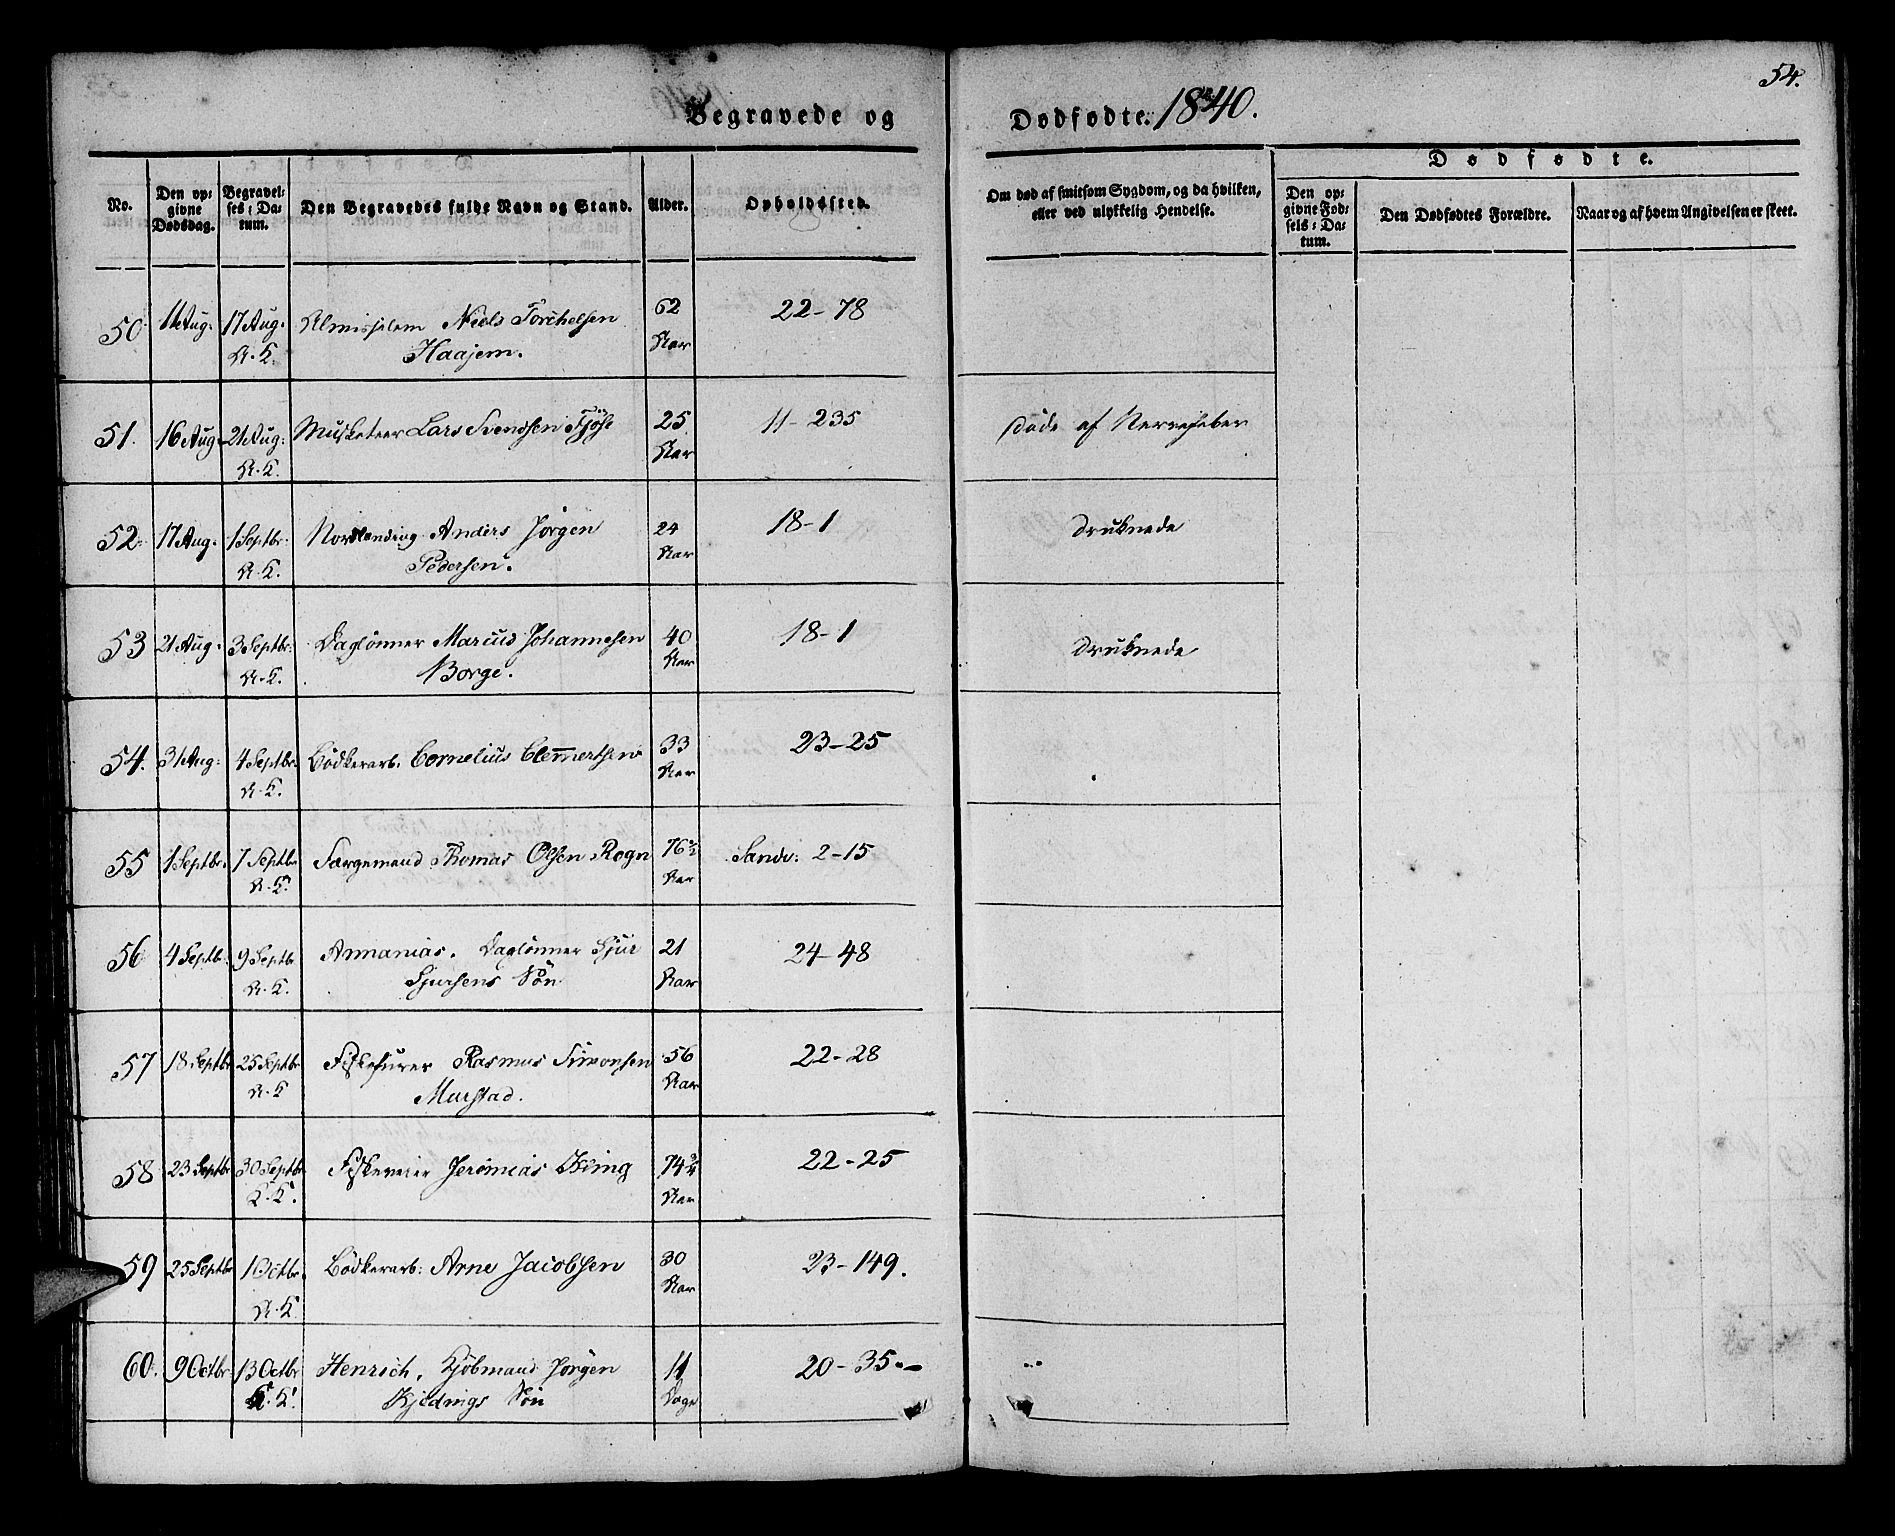 54.
Begravede og Dødfødte. 1840.
No.
Den op-
givne
Dødsdag.
Begravel-
ses-Da-
tum.
Den Begravedes fulde Navn og Stand.
Alder.
Opholdssted.
Om død af smitsom Sygdom, og da hvilken,
eller ved ulykkelig Hendelse.
Dødfødte.
Den op-
givne Fød-
sels-Da-
tum.
Den Dødfødtes Forældre.
Naar og af hvem Angivelsen er skeet.
50 11 Aug. 17 Aug. Almisselem Niels Torchelsen 62 22-78
N.K. Haajem. Aar
51. 16 Aug. 21 Aug: Musketeer Lars Svendsen Tjöse 25 11-235 Döde af Nervefeber
N.K. Aar
52. 17 Aug. 1 Septbr: Nordlending Anders Jörgen 24 18-1 Druknede
N.K. Pedersen. Aar
53 21 Aug. 3 Septbr: Daglönner Marcus Johannesen 40 18-1 Druknede
N.K. Borge. Aar
54. 31 Aug: 4 Septbr. Bödkerarb. Cornelius Clemertsen 33 23-25
N.K. Aar
55 1 Septbr. 7 Septbr Sörgemand Thomas Olsen Rogn 76½ Sandv: 2-15
N.K. Aar
56 4 Septbr. 9 Septbr Annanias. Daglönner Sjur 21 24-48
N.K. Sjursens Sön Aar
57 18 Septbr 25 Septbr Rasmus Simonsen 56 22-28
N.K. Murstad. Aar
58 23 Septbr 30 Septbr Jeremias 74¾ 22-25
K.K. Aar
59 25 Septbr 1 Octbr. Bödkerarb: Arne Jacobsen 30 23-149.
N.K. Aar
60. 9 Octbr 13 Octbr Henrich, Kjöbmand Jörgen 11 20-35.
K.K. Kjeldings Sön Dage